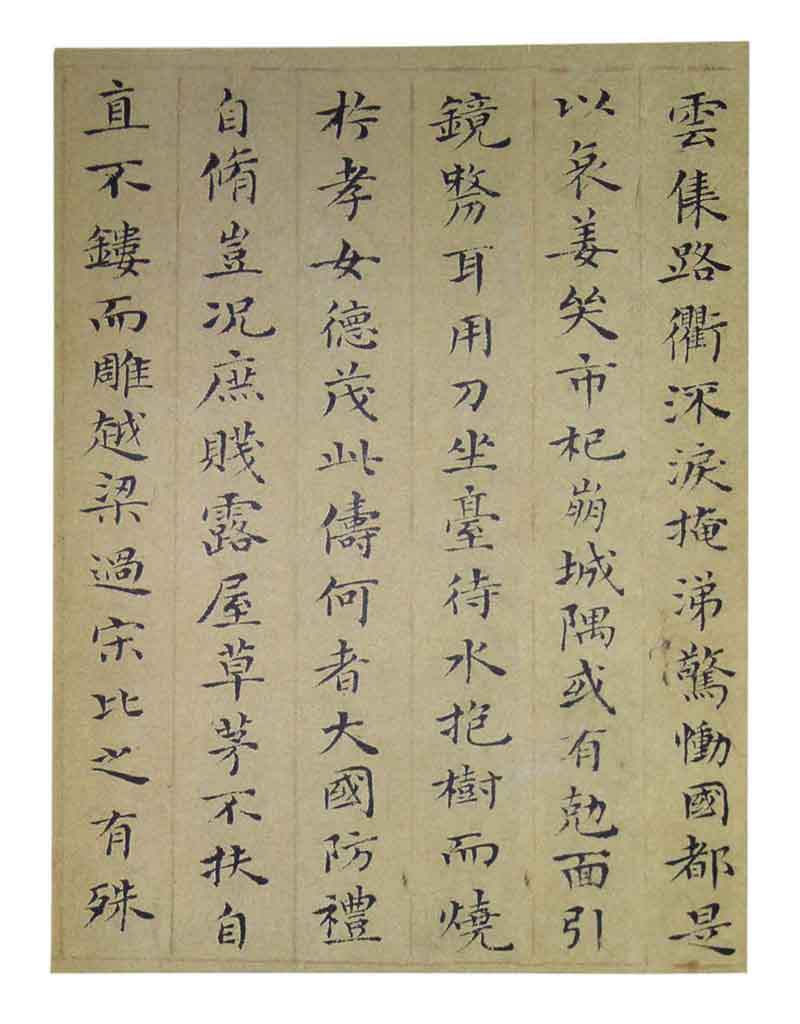 雲集路衢深淚掩涕驚慟國都是
以哀姜哭市杞崩城隅或有勊面引
鏡剺耳用刀坐臺待水抱樹而燒
扵孝女德茂此儔何者大國防禮
自脩豈况庶賤露屋草茅不扶自
直不鏤而雕越梁過宋比之有殊